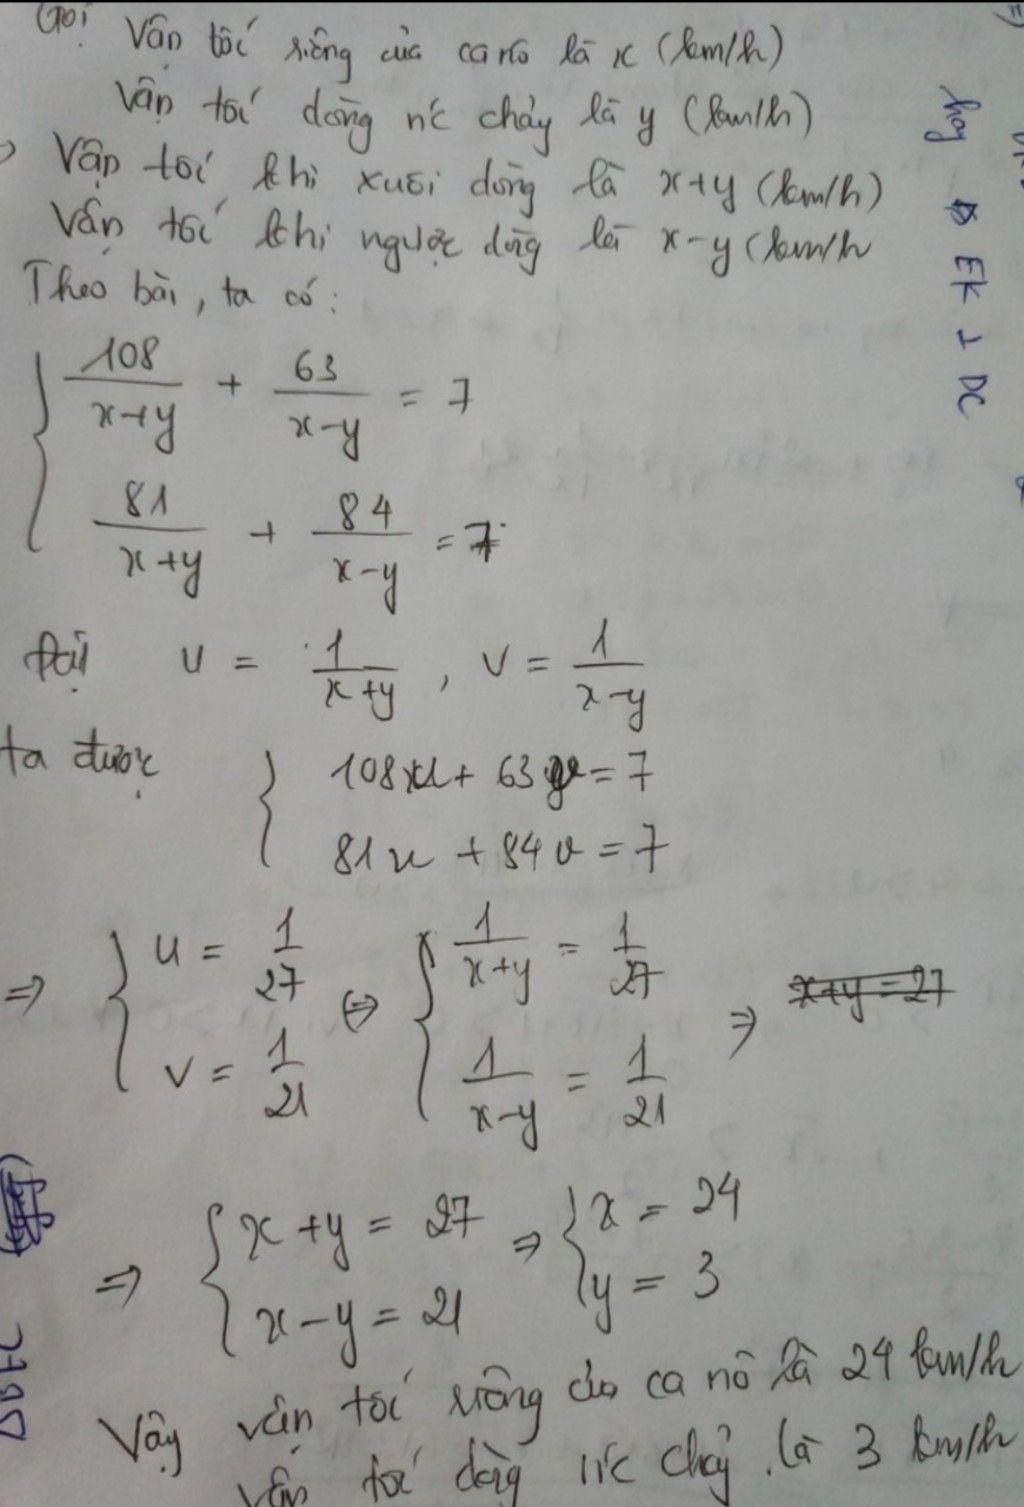 Gọi vận tốc riêng của ca nô là x (km/h)
Vận tốc dòng nc chảy là y (km/h)
Vận tốc khi xuôi dòng là x+y (km/h)
Vận tốc khi ngược dòng là x-y (km/h
Theo bài, ta có:
108/(x+y) + 63/(x-y) = 7
81/(x+y) + 84/(x-y) = 7
Đặt u = 1/(x+y), v = 1/(x-y)
ta được
108u + 63v = 7
81u + 84v = 7
=> { u = 1/27 <=> { 1/(x+y) = 1/27 => x+y=27
v = 1/21 1/(x-y) = 1/21
=> { x+y = 27 => { x = 24
x-y = 21 y = 3
Vậy vận tốc riêng của ca nô là 24 km/h
vận tốc dòng nc chảy là 3 km/h
hay
EK ⊥ DC